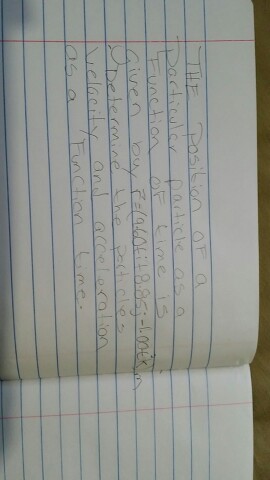 THE Position OF a
particular particle as a
Function OF time is
Given by r=(9.60ti+8.85j-1.00t²k)m
Determine the particles
velocity and acceleration
as a Function time.